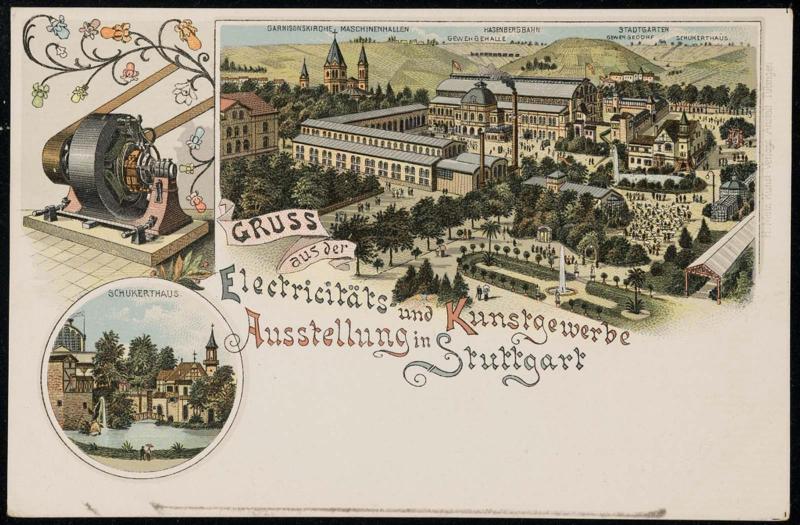 GARNISONSKIRCHE. MASCHINENHALLEN
HASENBERGBAHN
STADTGARTEN
GEWERBEHALLE
SCHUKERTHAUS.
GRUSS
aus der
Electricitäts und Kunstgewerbe
Ausstellung in Stuttgart
SCHUKERTHAUS.